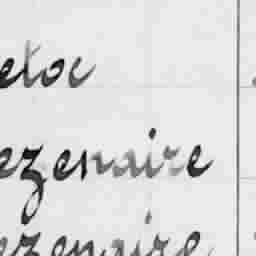 etoc
ezenaire
ezenaire